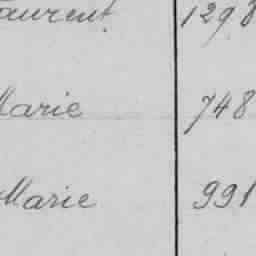 Laurent 1298
Marie 748
Marie 991